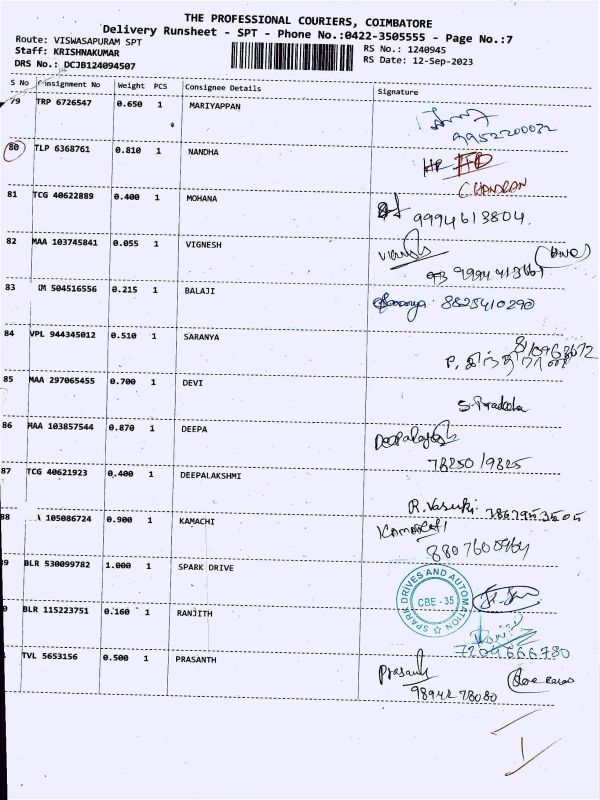 THE PROFESSIONAL COURIERS, COIMBATORE
Delivery Runsheet - SPT - Phone No.:0422-3505555 - Page No.:7
Route: VISWASAPURAM SPT
RS No.: 1240945
Staff: KRISHNAKUMAR
RS Date: 12-Sep-2023
DRS No.: DCJB124094507
S No Consignment No Weight PCS Consignee Details Signature
79 TRP 6726547 0.650 1 MARIYAPPAN
9952200032
80 TLP 6368761 0.810 1 NANDHA
CHANDRAN
81 TCG 40622889 0.400 1 MOHANA
9994613804
82 MAA 103745841 0.055 1 VIGNESH
83 504516556 0.215 1 BALAJI
Saranya 8825410290
84 VPL 944345012 0.510 1 SARANYA
85 MAA 297065455 0.700 1 DEVI
86 MAA 103857544 0.870 1 DEEPA
Deepalaksh
78250 19825
87 TCG 40621923 0.400 1 DEEPALAKSHMI
R. Vasuki
88 105086724 0.900 1 KAMACHI
8807600964
9 BLR 530099782 1.000 1 SPARK DRIVE
SPARK DRIVES AND AUTOMATION
CBE - 35
0 BLR 115223751 0.160 1 RANJITH
7209666780
TVL 5653156 0.500 1 PRASANTH
Prasanth
98942 78080